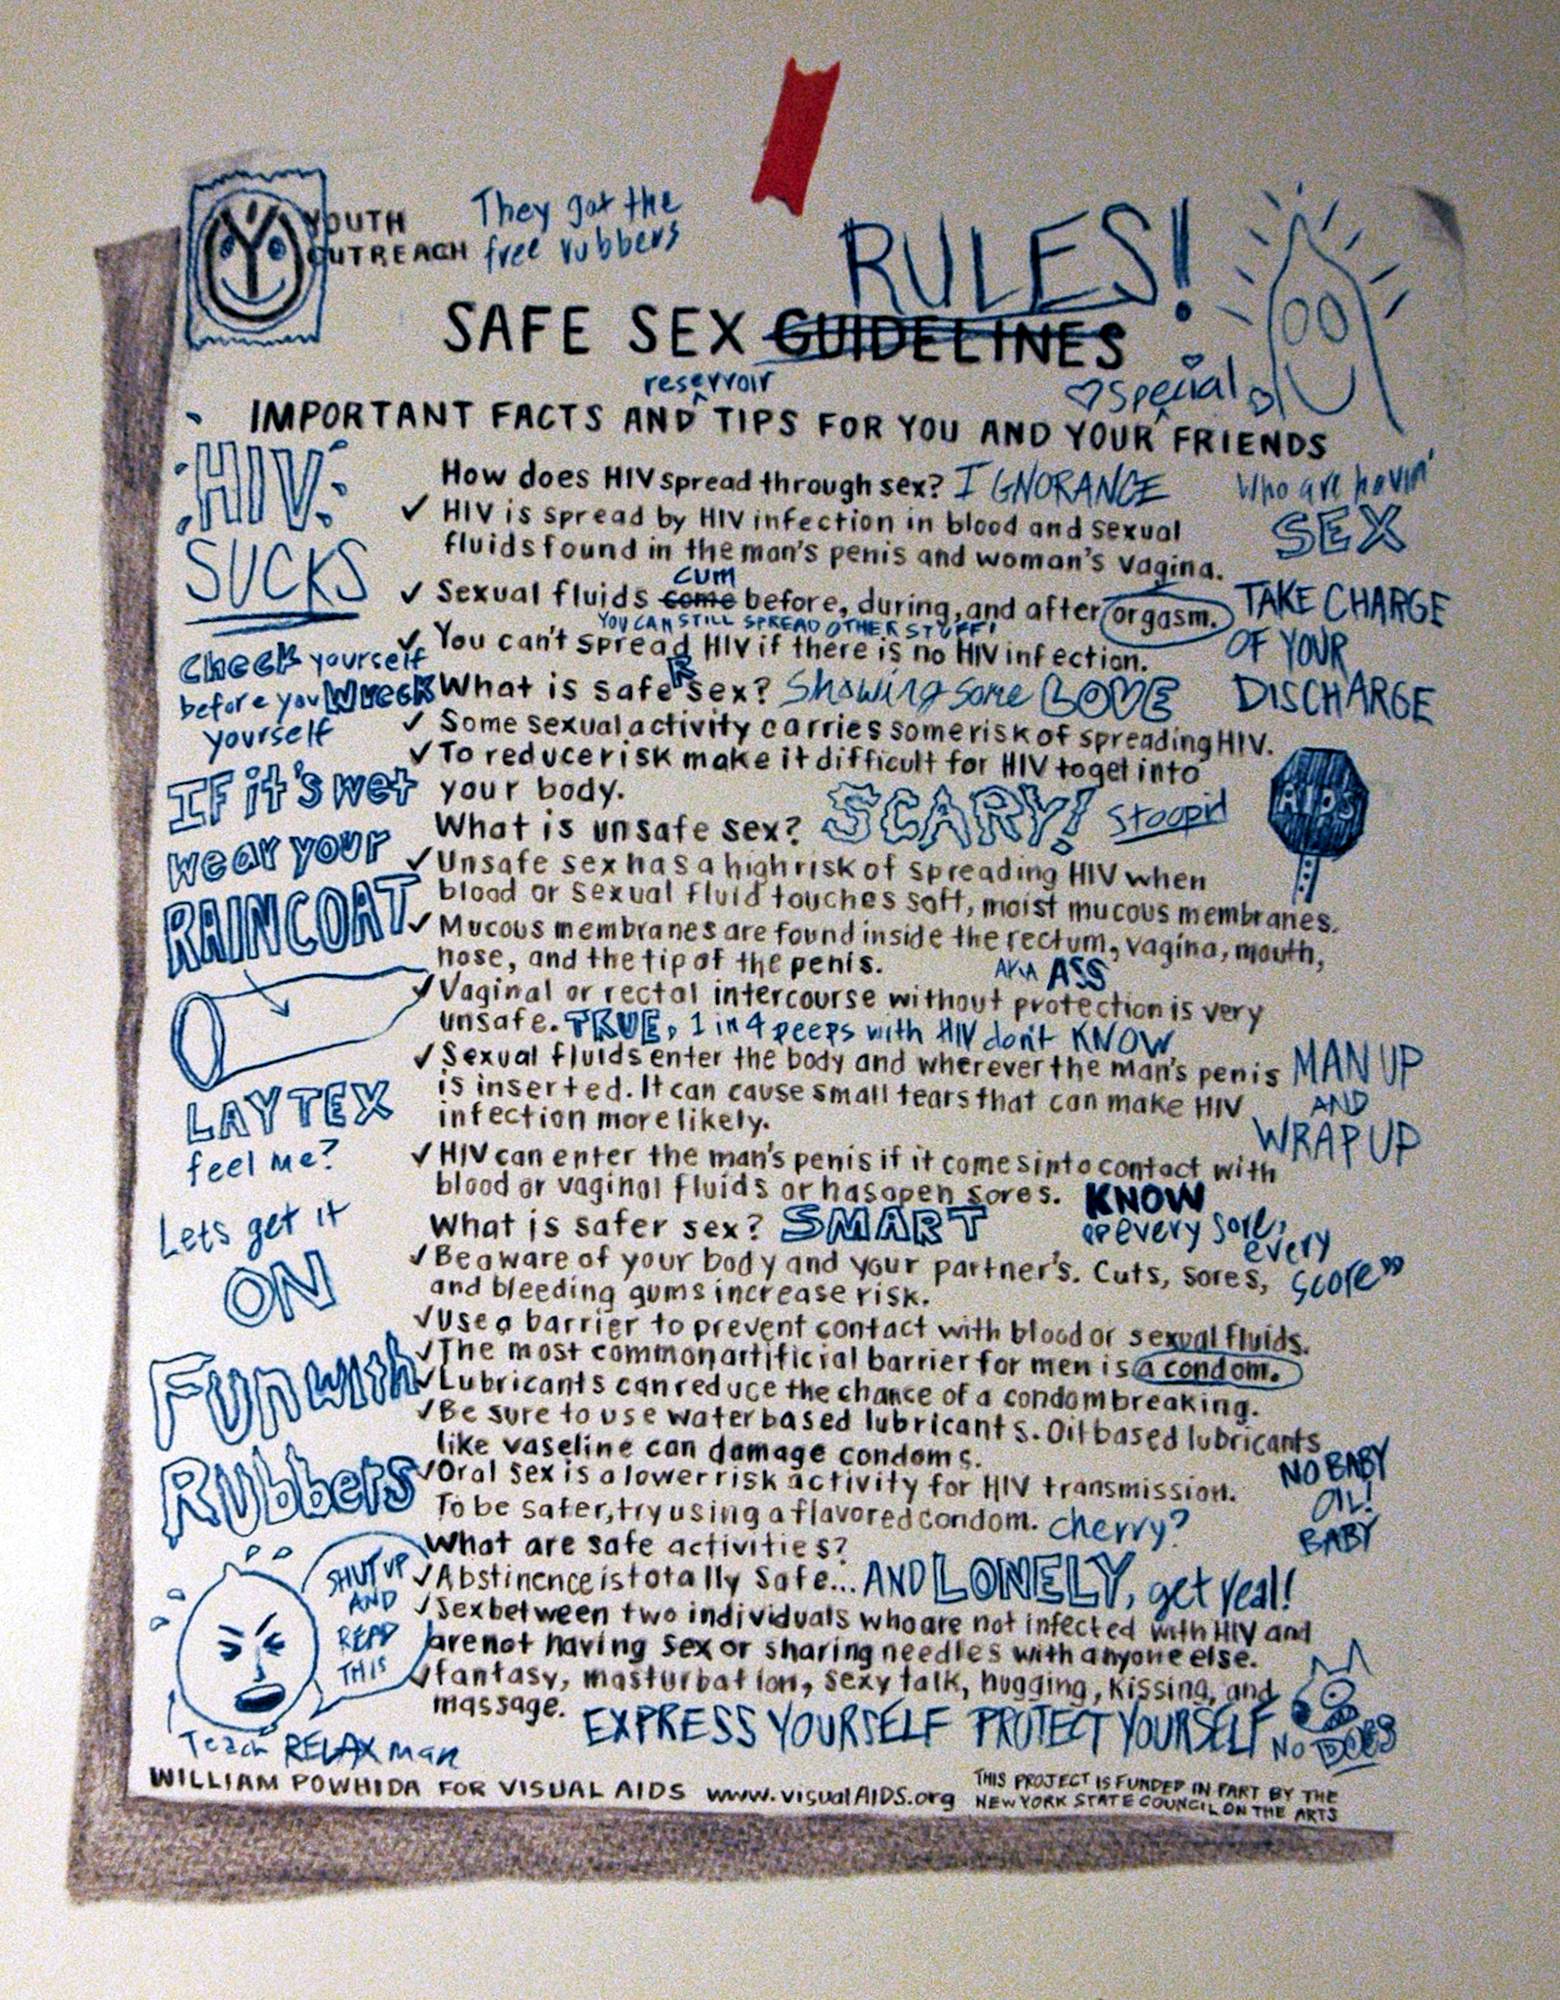 YOUTH
OUTREACH
They got the
free rubbers
RULES!
SAFE SEX GUIDELINES
reservoir
special
IMPORTANT FACTS AND TIPS FOR YOU AND YOUR FRIENDS
HIV:
SUCKS
How does HIV spread through sex? IGNORANCE
who are havin'
SEX
✓ HIV is spread by HIV infection in blood and sexual
fluids found in the man's penis and woman's vagina.
cum
✓ Sexual fluids come before, during, and after orgasm.
TAKE CHARGE
OF YOUR
DISCHARGE
YOU CAN STILL SPREAD OTHER STUFF!
✓ You can't spread HIV if there is no HIV infection.
Check yourself
before you Wreck
yourself
R
What is safe sex? Showing some LOVE
✓ Some sexual activity carries some risk of spreading HIV.
✓ To reduce risk make it difficult for HIV to get into
your body.
IF it's wet
wear your
RAINCOAT
What is unsafe sex? SCARY! Stoopid
AIDS
✓ Unsafe sex has a high risk of spreading HIV when
blood or sexual fluid touches soft, moist mucous membranes.
✓ Mucous membranes are found inside the rectum, vagina, mouth,
nose, and the tip of the penis.
AKA ASS
✓ Vaginal or rectal intercourse without protection is very
unsafe. TRUE, 1 in 4 peeps with HIV don't KNOW
✓ Sexual fluids enter the body and wherever the man's penis
is inserted. It can cause small tears that can make HIV
infection more likely.
MAN UP
AND
WRAP UP
LAYTEX
feel me?
✓ HIV can enter the man's penis if it comes into contact with
blood or vaginal fluids or has open sores.
KNOW
"every sore,
every
score"
Lets get it
ON
What is safer sex? SMART
✓ Be aware of your body and your partner's. Cuts, sores,
and bleeding gums increase risk.
✓ Use a barrier to prevent contact with blood or sexual fluids.
✓ The most common artificial barrier for men is a condom.
Fun with
Rubbers
✓ Lubricants can reduce the chance of a condom breaking.
✓ Be sure to use water based lubricants. Oil based lubricants
like vaseline can damage condoms.
NO BABY
OIL!
BABY
✓ Oral sex is a lower risk activity for HIV transmission.
To be safer, try using a flavored condom. cherry?
What are safe activities?
✓ Abstinence is totally safe... AND LONELY, get real!
✓ Sex between two individuals who are not infected with HIV and
are not having sex or sharing needles with anyone else.
✓ fantasy, masturbation, sexy talk, hugging, kissing, and
massage. EXPRESS YOURSELF PROTECT YOURSELF
NO DOGS
SHUT UP
AND
READ
THIS
Teach RELAX man
WILLIAM POWHIDA FOR VISUAL AIDS www.visualAIDS.org
THIS PROJECT IS FUNDED IN PART BY THE
NEW YORK STATE COUNCIL ON THE ARTS